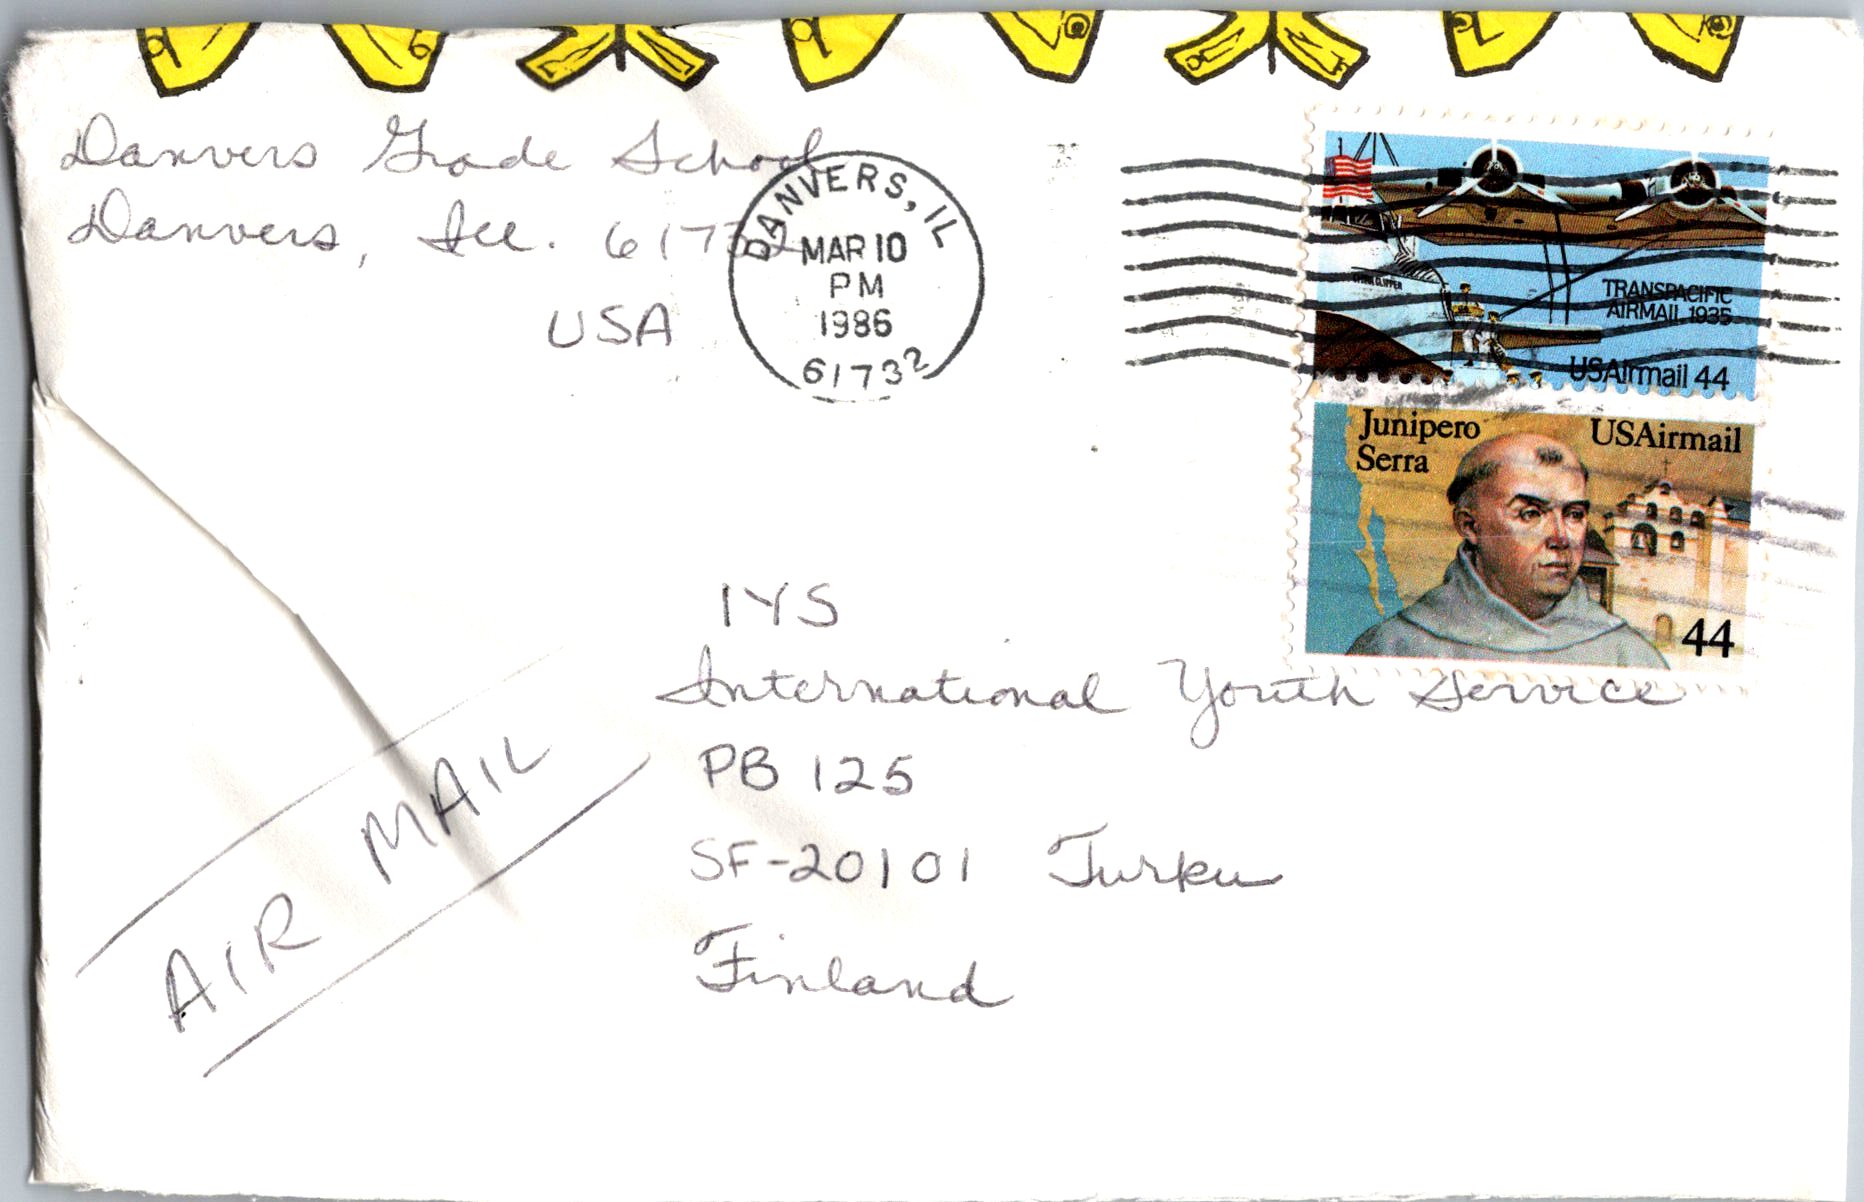 Danvers Grade School
Danvers, Ill. 61732
USA
DANVERS, IL
MAR 10
PM
1986
61732
TRANSPACIFIC
AIRMAIL 1935
USAirmail 44
Junipero
Serra
USAirmail
44
IYS
International Youth Service
PB 125
SF-20101 Turku
Finland
AIR MAIL